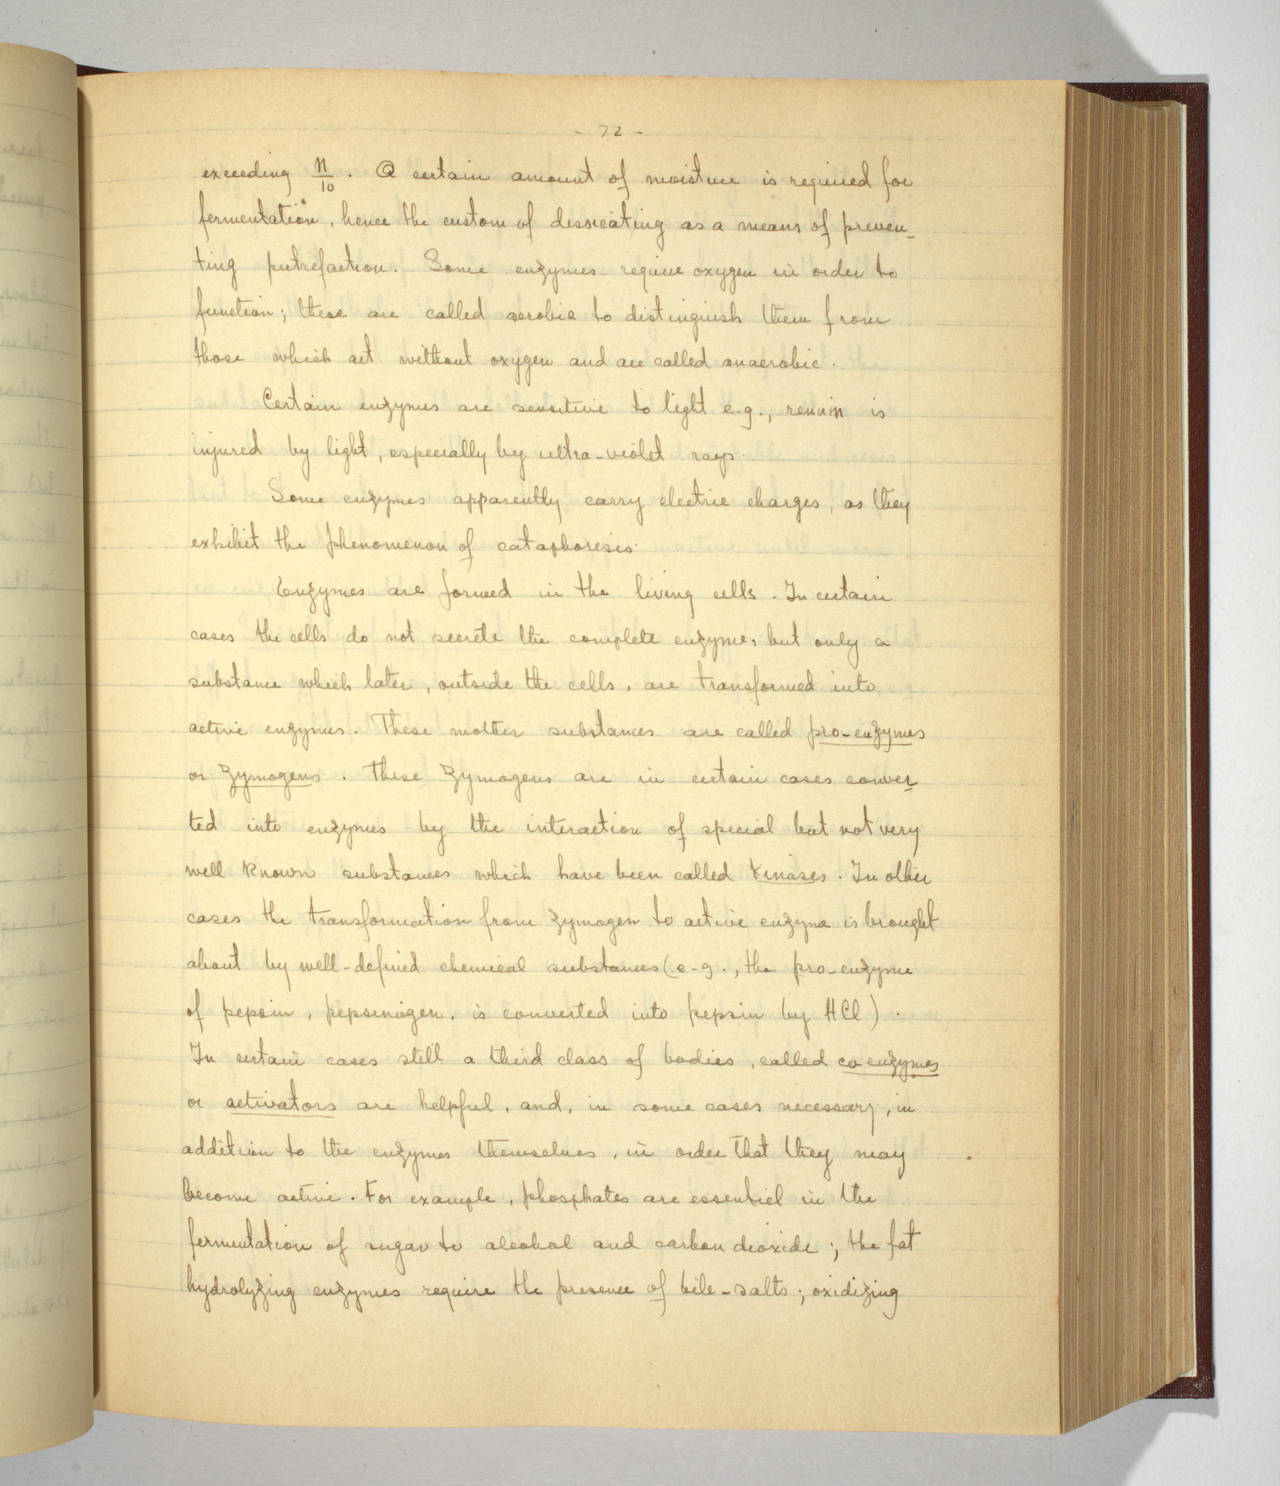 - 72 -
exceeding n/10. A certain amount of moisture is required for
fermentation, hence the custom of dessicating as a means of preven-
ting putrefaction. Some enzymes require oxygen in order to
function; these are called aerobic to distinguish them from
those which act without oxygen and are called anaerobic.
Certain enzymes are sensitive to light e.g., rennin is
injured by light, especially by ultra-violet rays.
Some enzymes apparently carry electric charges, as they
exhibit the phenomenon of cataphoresis.
Enzymes are formed in the living cells. In certain
cases the cells do not secrete the complete enzymes but only a
substance which later, outside the cells, are transformed into
active enzymes. These mother substances are called pro-enzymes
or zymogens. These zymogens are in certain cases conver-
ted into enzymes by the interaction of special but not very
well known substances which have been called kinases. In other
cases the transformation from zymogen to active enzyme is brought
about by well-defined chemical substances (e.g., the pro-enzyme
of pepsin, pepsinogen, is converted into pepsin by HCl).
In certain cases still a third class of bodies, called co-enzymes
or activators are helpful, and, in some cases necessary, in
addition to the enzymes themselves, in order that they may
become active. For example, phosphates are essentiel in the
fermentation of sugar to alcohol and carbon dioxide; the fat
hydrolyzing enzymes require the presence of bile-salts; oxidizing